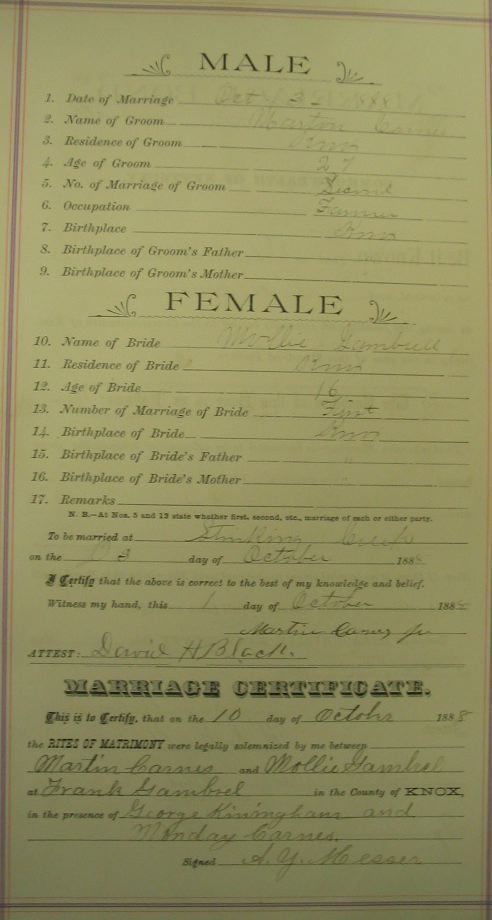 MALE
1. Date of Marriage Oct 3 1888
2. Name of Groom Martin Carnes
3. Residence of Groom Knox
4. Age of Groom 27
5. No. of Marriage of Groom Second
6. Occupation Farmer
7. Birthplace Knox
8. Birthplace of Groom's Father
9. Birthplace of Groom's Mother
FEMALE
10. Name of Bride Mollie Gambrel
11. Residence of Bride Knox
12. Age of Bride 16
13. Number of Marriage of Bride First
14. Birthplace of Bride Knox
15. Birthplace of Bride's Father "
16. Birthplace of Bride's Mother "
17. Remarks
N. B.—At Nos. 5 and 13 state whether first, second, etc., marriage of each or either party.
To be married at Stinking Creek
on the 3 day of October 1888
I Certify that the above is correct to the best of my knowledge and belief.
Witness my hand, this 1 day of October 1888
Martin Carnes Jr
ATTEST: David H Black.
MARRIAGE CERTIFICATE.
This is to Certify, that on the 10 day of Octobr 1888
the RITES OF MATRIMONY were legally solemnized by me between
Martin Carnes and Mollie Gambrel
at Frank Gambrel in the County of KNOX,
in the presence of George Kiningham and
Monday Carnes.
Signed A. Y. Messer